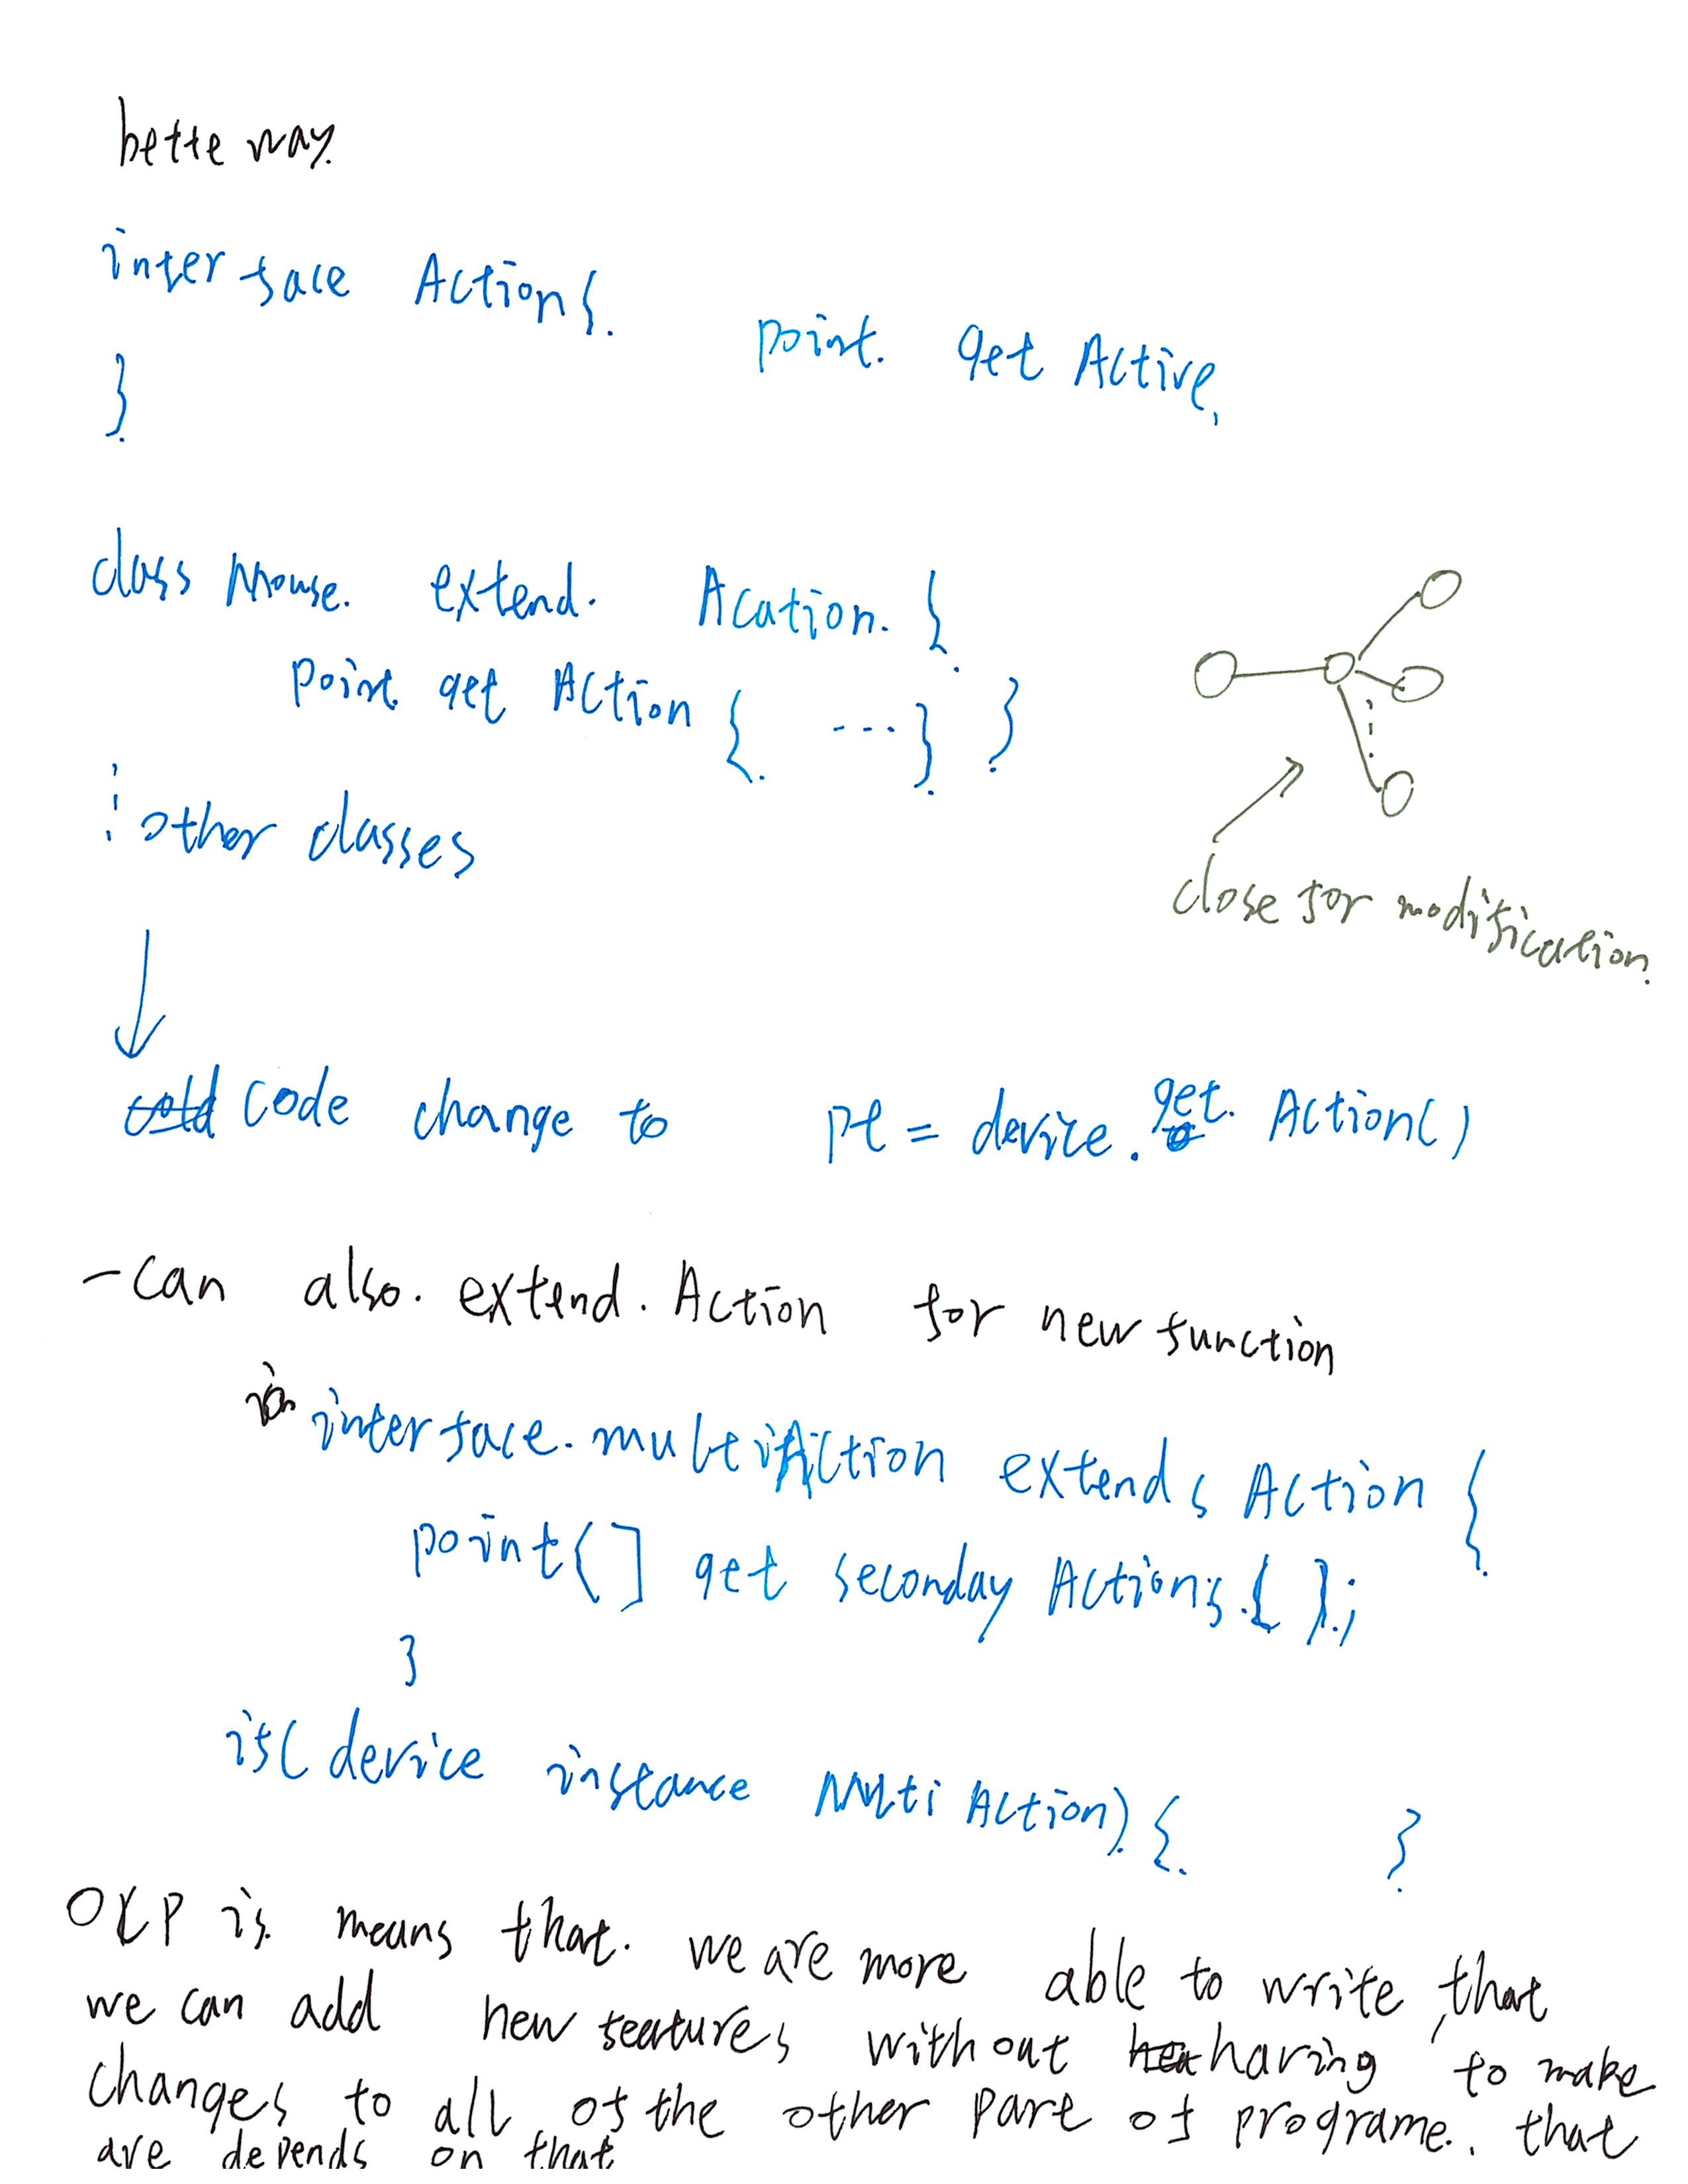 bette way.
interface Action {.
point. get Active,
}
class Mouse. extend. Acation. {
point. get Action { ... } }
other classes
close for modification.
code change to pt = device. get. Action()
- can also. extend. Action for new function
interface. multiAction extends Action {
point[] get seconday Actions.{ };
}
if( device instance Multi Action) { }
OCP is means that. we are more able to write, that
we can add new features without having to make
changes to all of the other part of programe. that
are depends on that